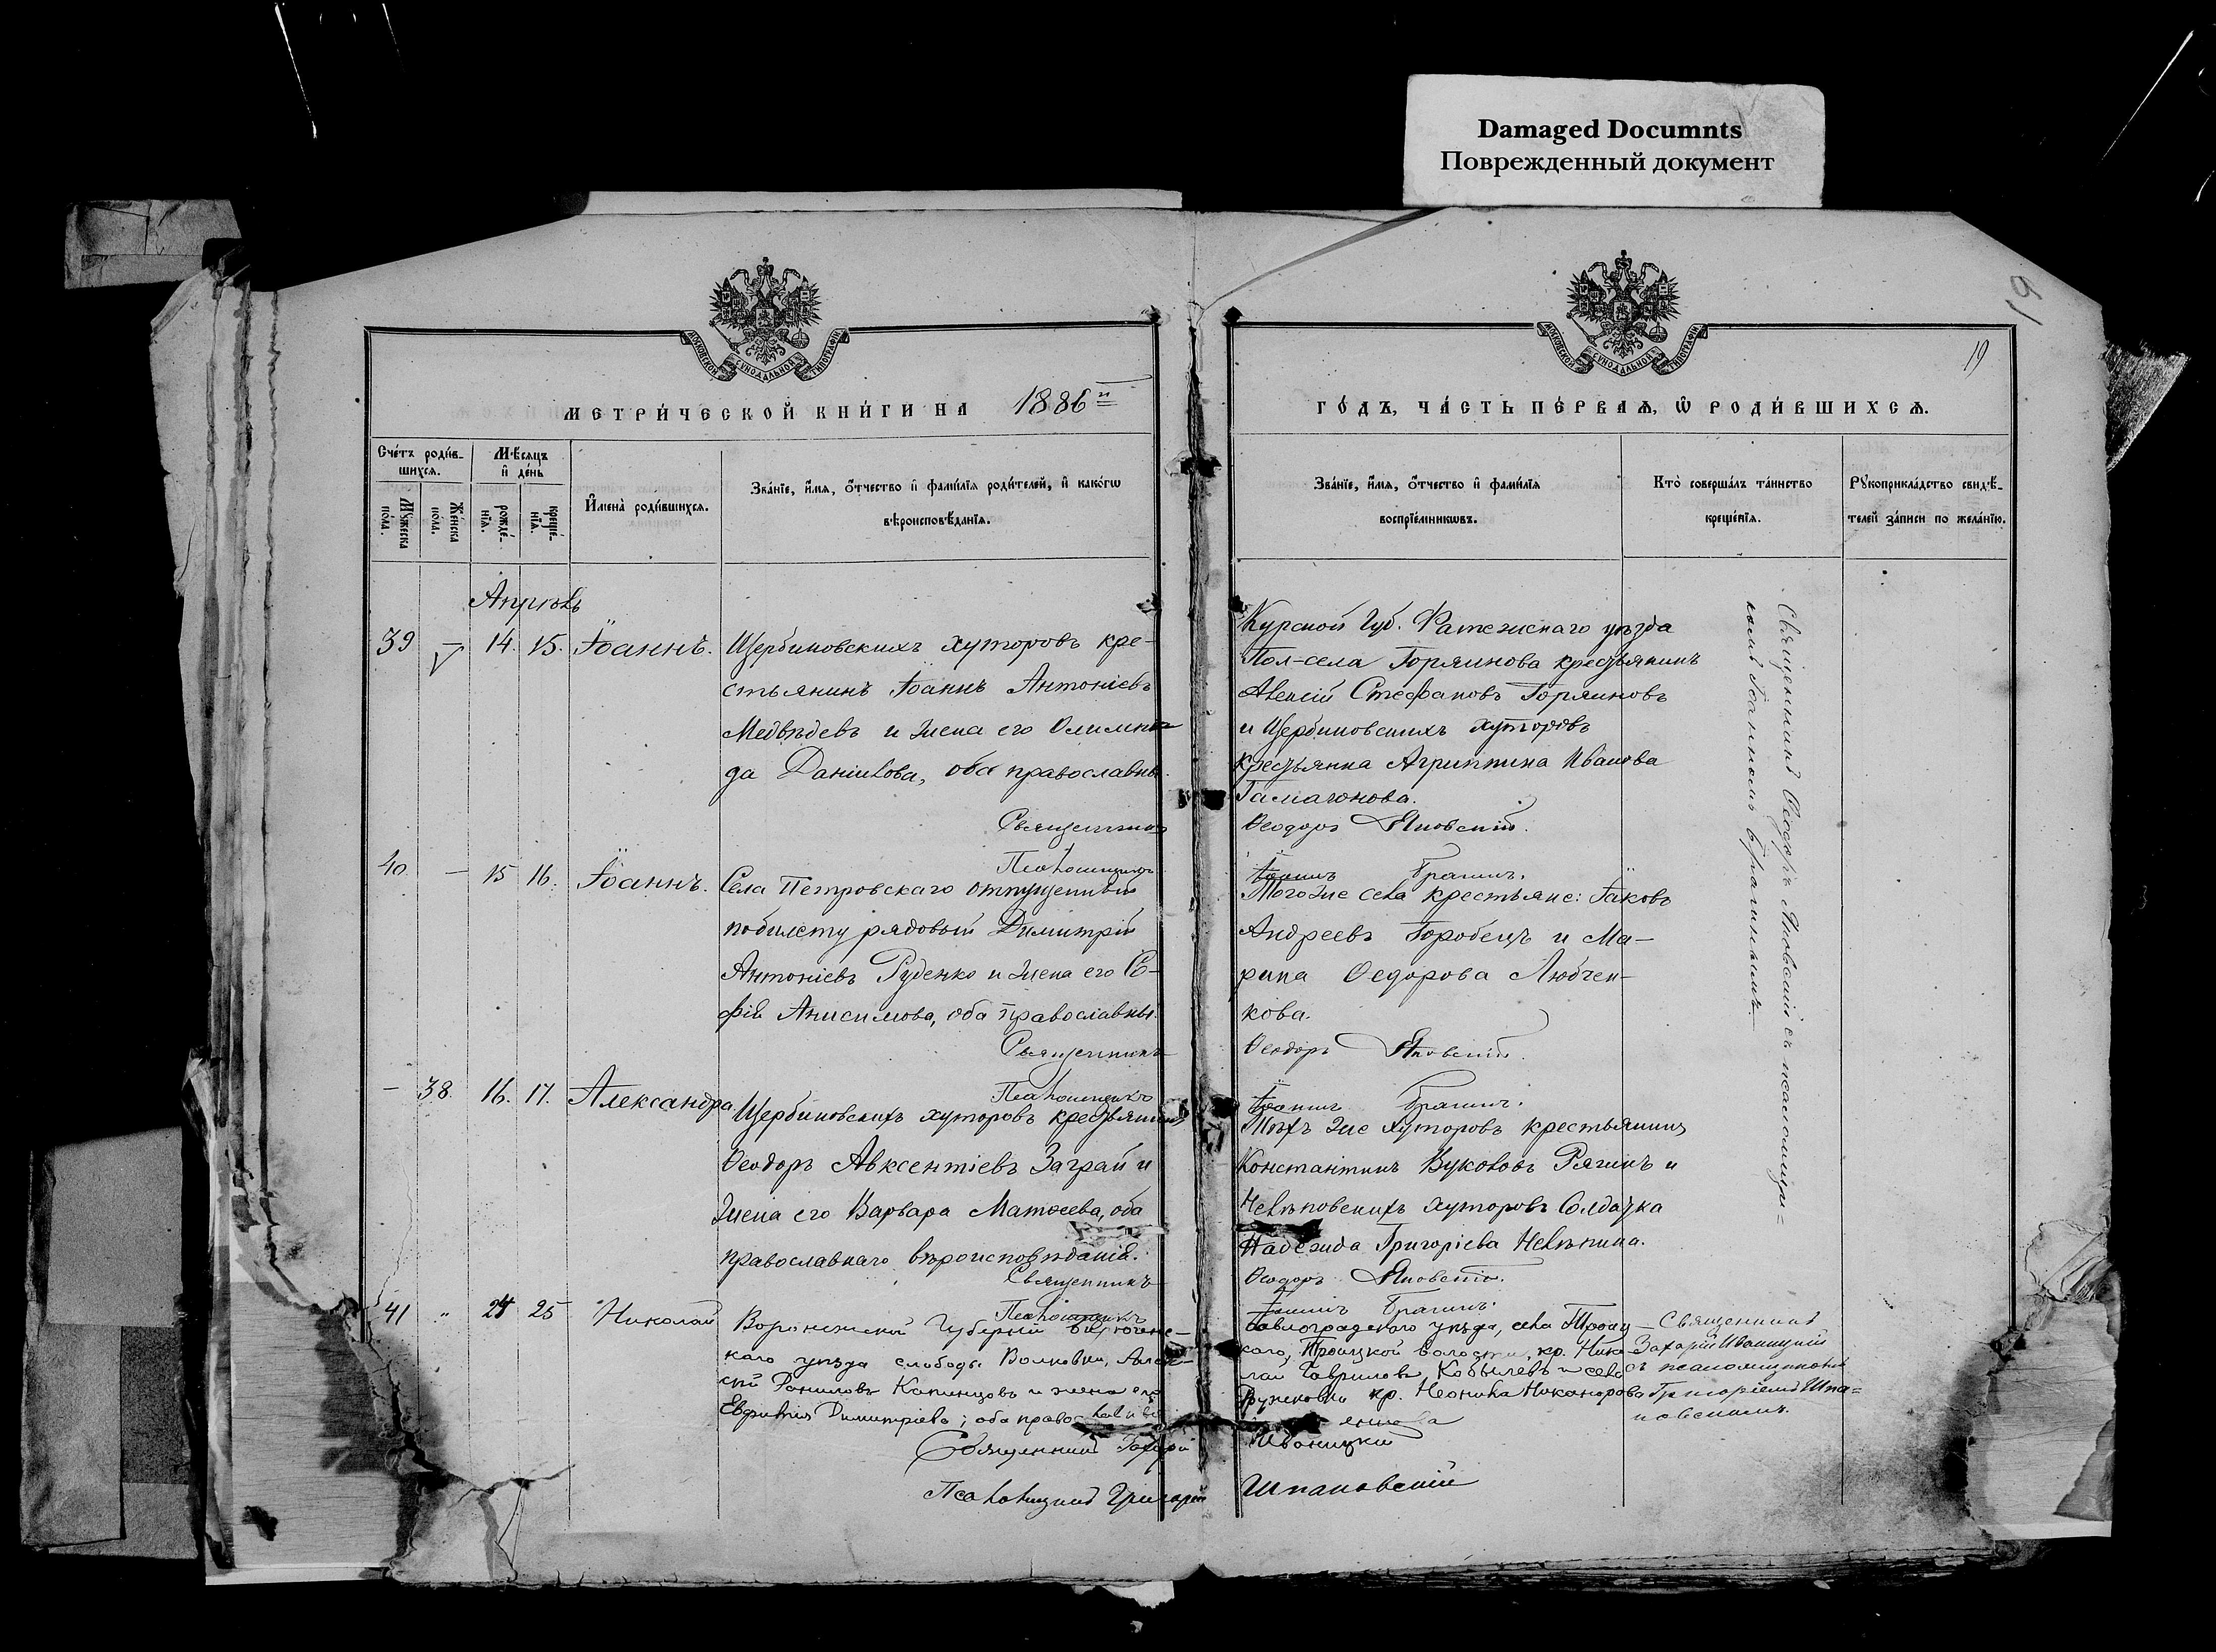 Damaged Documnts
Поврежденный документ
19
19
МОСКОВСКОЙ СѴНОДАЛЬНОЙ ТИПОГРАФІИ
МОСКОВСКОЙ СѴНОДАЛЬНОЙ ТИПОГРАФІИ
МЕТРИ́ЧЕСКОЙ КНИ́ГИ НА 1886й
ГО́ДЪ, ЧА́СТЬ ПЕ́РВАѦ, Ѿ РОДИ́ВШИХСѦ.
Сче́тъ роди́в-
шихсѧ.
Мꙋ́жеска по́ла.
Же́нска по́ла.
Мѣ́сѧцъ
и҆ де́нь
рожде́-
нїѧ.
креще́-
нїѧ.
И҆мена̀ роди́вшихсѧ.
Зва́нїе, и҆́мѧ, ѻ҆́тчество и҆ фамі́лїѧ роди́телей, и҆ како́гѡ
вѣроисповѣ́данїѧ.
Зва́нїе, и҆́мѧ, ѻ҆́тчество и҆ фамі́лїѧ
воспрїе́мникѡвъ.
Кто̀ соверша́лъ та́инство
креще́нїѧ.
Рꙋкоприкла́дство свидѣ́-
телей за́писи по жела́нїю.
Апрѣль
39 — 14. 15. Іоаннъ.
Щербиновскихъ хуторовъ кре-
стьянинъ Іоаннъ Антоніевъ
Медвѣдевъ и жена его Олимпіа-
да Даніилова, оба православны.
Священникъ
Псаломщикъ
Курской Губ. Фатежскаго уѣзда
Пол-села Горяинова крестьянинъ
Алексій Стефановъ Горяиновъ
и Щербиновскихъ хуторовъ
крестьянка Агриппина Иванова
Гамаюнова.
Ѳеодоръ Яновскій.
Іоаннъ Брагинъ.
Священникъ Ѳеодоръ Яновскій съ псаломщи=
комъ Іоанномъ Брагинымъ.
40 — 15 16. Іоаннъ.
Села Петровскаго отпущенный
по билету рядовый Димитрій
Антоніевъ Руденко и жена его Со-
фія Анисимова, оба православны.
Священникъ
Псаломщикъ
Того же села крестьяне: Іаковъ
Андреевъ Горобецъ и Ма-
рина Ѳедорова Любчен-
кова.
Ѳеодоръ Яновскій.
Іоаннъ Брагинъ.
— 38. 16. 17. Александра
Щербиновскихъ хуторовъ крестьянинъ
Ѳеодоръ Авксентіевъ Заграй и
жена его Варвара Матѳеева, оба
православнаго вѣроисповѣданія.
Священникъ
Псаломщикъ
Тѣхъ же хуторовъ крестьянинъ
Константинъ Вуколовъ Рягинъ и
Нелѣповскихъ хуторовъ Солдатка
Надежда Григоріева Нелѣпина.
Ѳеодоръ Яновскій.
Іоаннъ Брагинъ.
41 „ 24 25 Николай
Воронежской Губерніи Бирюченс-
каго уѣзда слободы Волковки, Алек-
сѣй Даниловъ Капинцовъ и жена его
Евфимія Димитріева; оба православны
Священникъ Захарій
Псаломщикъ Григорій
Павлоградскаго уѣзда, села Троиц-
каго, Троицкой волости, кр. Нико-
лай Гавриловъ Кобылевъ и села
Дружковки кр. Неонила Никанорова
Иваницкій
Шпаковскій
Священникъ
Захарій Иваницкій
съ псаломщикомъ
Григоріемъ Шпа=
ковскимъ.